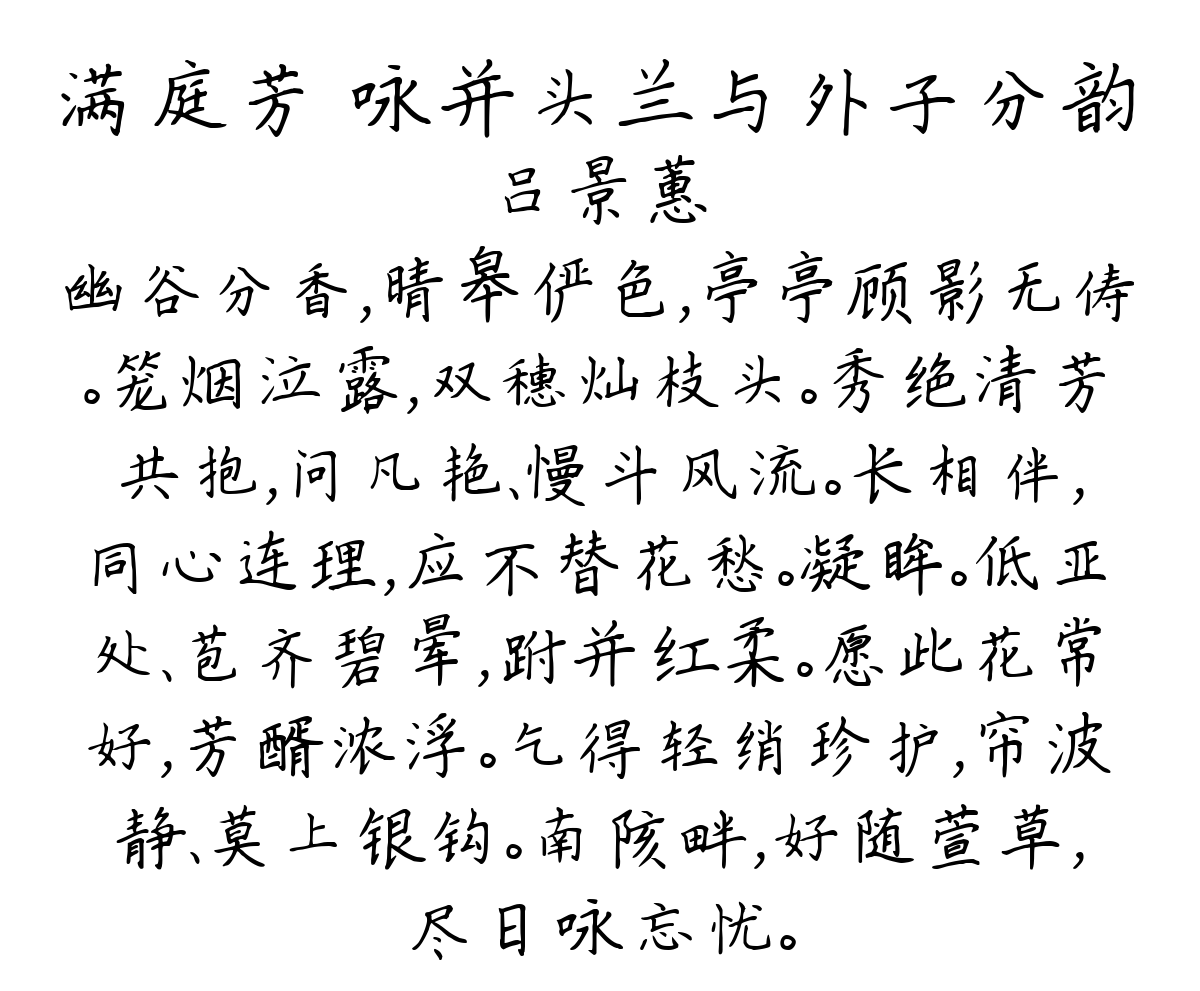 满庭芳 咏并头兰与外子分韵
吕景蕙
幽谷分香,晴皋俨色,亭亭顾影无俦
。笼烟泣露,双穗灿枝头。秀绝清芳
共抱,问凡艳、慢斗风流。长相伴,
同心连理,应不替花愁。凝眸。低亚
处、苞齐碧晕,跗并红柔。愿此花常
好,芳醑浓浮。乞得轻绡珍护,帘波
静、莫上银钩。南陔畔,好随萱草,
尽日咏忘忧。